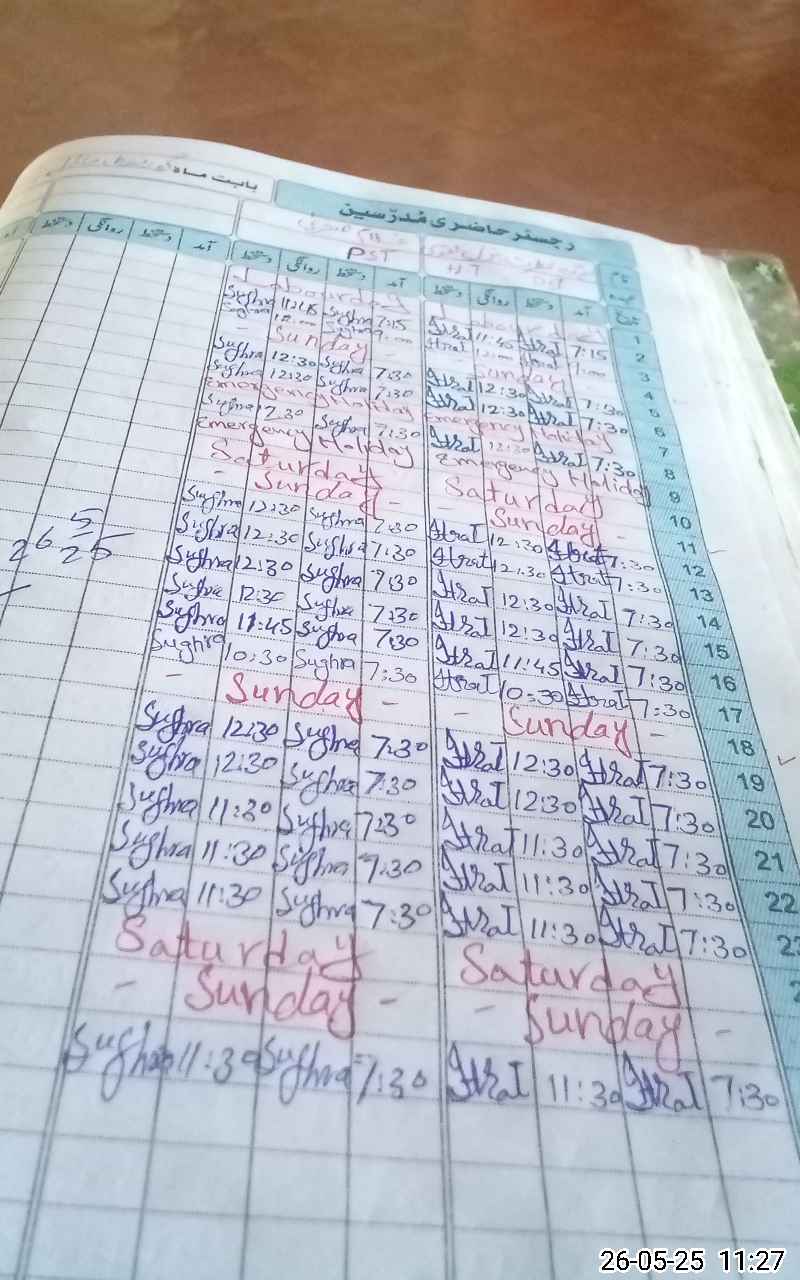 بابت ماہ
رجسٹر حاضری مدرّسین
نام
PST
آمد دستخط روانگی دستخط آمد دستخط روانگی دستخط آمد دستخط روانگی دستخط
تاریخ
Labour day
Sughra 11:45 Sughra 7:15 AtraI 11:45 AtraI 7:15 1
2
- Sunday - Sunday 3
Sughra 12:30 Sughra 7:30 AtraI 12:30 AtraI 7:30 4
Sughra 12:30 Sughra 7:30 AtraI 12:30 AtraI 7:30 5
Emergency Holiday Emergency Holiday 6
Sughra 7:30 Sughra 7:30 AtraI 12:30 AtraI 7:30 7
Emergency Holiday Emergency Holiday 8
Saturday Saturday 9
- Sunday - - Sunday - 10
Sughra 12:30 Sughra 7:30 AtraI 12:30 AtraI 7:30 11
Sughra 12:30 Sughra 7:30 AtraI 12:30 AtraI 7:30 12
Sughra 12:30 Sughra 7:30 AtraI 12:30 AtraI 7:30 13
Sughra 12:30 Sughra 7:30 AtraI 12:30 AtraI 7:30 14
Sughra 11:45 Sughra 7:30 AtraI 11:45 AtraI 7:30 15
Sughra 10:30 Sughra 7:30 AtraI 10:30 AtraI 7:30 16
- Sunday - - Sunday - 17
Sughra 12:30 Sughra 7:30 AtraI 12:30 AtraI 7:30 18
Sughra 12:30 Sughra 7:30 AtraI 12:30 AtraI 7:30 19
Sughra 11:30 Sughra 7:30 AtraI 11:30 AtraI 7:30 20
Sughra 11:30 Sughra 7:30 AtraI 11:30 AtraI 7:30 21
Sughra 11:30 Sughra 7:30 AtraI 11:30 AtraI 7:30 22
Saturday Saturday
- Sunday - - Sunday -
Sughra 11:30 Sughra 7:30 AtraI 11:30 AtraI 7:30
26 5 25
26-05-25 11:27